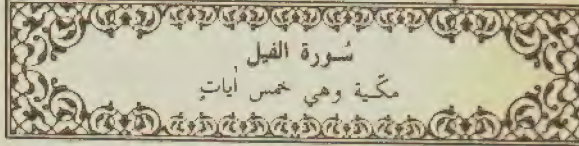 سُورة الفيل
مكّية وهي خمس أيات